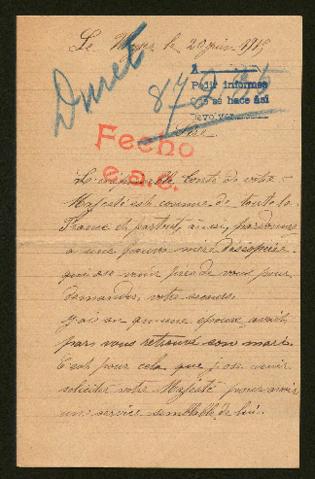 Le Havre le 20 juin 1915
Duret
A
Pedir informes
que se hace así
devolver
87235
Fecho
e.a.c.
Sire
L'inépuisable bonté de votre
Majesté est connue de toute la
France et partout, aussi, pardonnez
a une pauvre mère désespérée
qui ose venir près de vous pour
demander votre secours.
J'ai su qu'une épouse avait
par vous retrouvé son mari.
C'est pour cela que j'ose venir
soliciter votre Majesté pour avoir
une service semblable de lui.